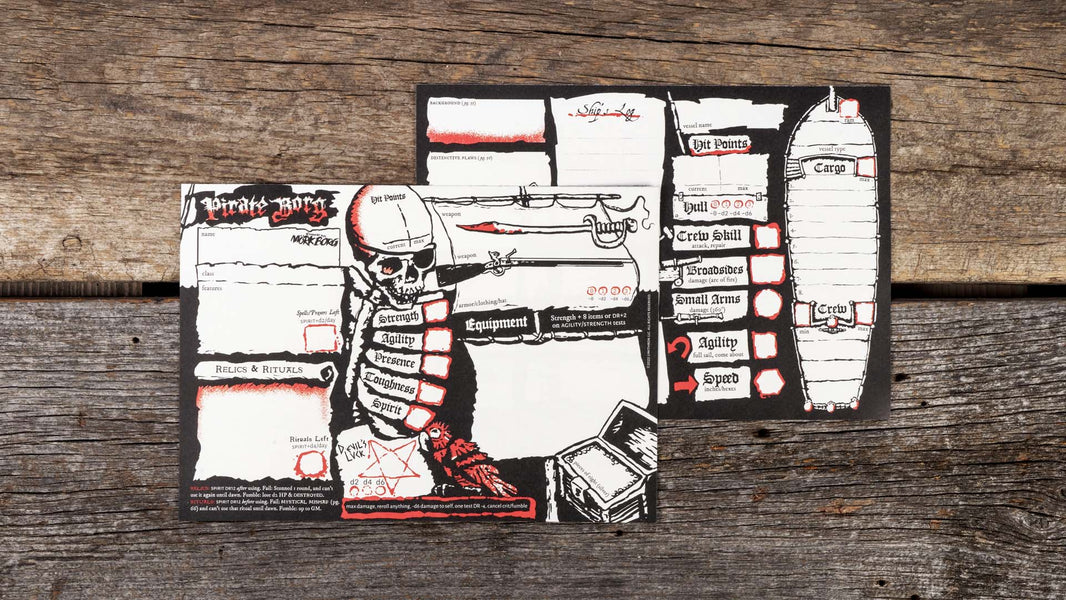 BACKGROUND (pg. 51)
DISTINCTIVE FLAWS (pg. 51)
Ship's Log
vessel name
Hit Points
current max
Hull
-0 -d2 -d4 -d6
Crew Skill
attack, repair
Broadsides
damage (arc of fire)
Small Arms
damage (360°)
Agility
full sail, come about
Speed
inches/hexes
ram
vessel type
Cargo
max
Crew
min max
Pirate Borg
name
MÖRK BORG
class
features
Spells/Prayers Left
SPIRIT+d2/day
RELICS & RITUALS
Rituals Left
SPIRIT+d4/day
RELICS: SPIRIT DR12 after using. Fail: Stunned 1 round, and can't
use it again until dawn. Fumble: lose d2 HP & DESTROYED.
RITUALS: SPIRIT DR12 before using. Fail: MYSTICAL MISHAP (pg.
66) and can't use that ritual until dawn. Fumble: up to GM.
Hit Points
current max
Strength
Agility
Presence
Toughness
Spirit
DEVIL'S
LUCK
d2 d4 d6
max damage, reroll anything, -d6 damage to self, one test DR -4, cancel crit/fumble
weapon
weapon
armor/clothing/hat
-0 -d2 -d4 -d6
Equipment
Strength + 8 items or DR+2
on AGILITY/STRENGTH tests
pieces of eight (silver)